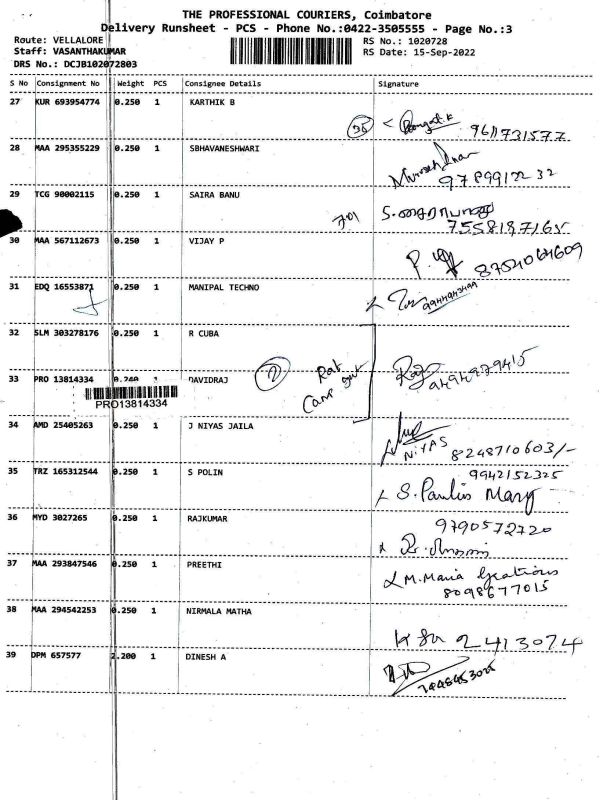 THE PROFESSIONAL COURIERS, Coimbatore
Delivery Runsheet - PCS - Phone No.:0422-3505555 - Page No.:3
Route: VELLALORE RS No.: 1020728
Staff: VASANTHAKUMAR RS Date: 15-Sep-2022
DRS No.: DCJB102072803
S No Consignment No Weight PCS Consignee Details Signature
27 KUR 693954774 0.250 1 KARTHIK B
28 MAA 295355229 0.250 1 SBHAVANESHWARI
29 TCG 90002115 0.250 1 SAIRA BANU
7558187165
30 MAA 567112673 0.250 1 VIJAY P
8754064609
31 EDQ 16553871 0.250 1 MANIPAL TECHNO
32 SLM 303278176 0.250 1 R CUBA
33 PRO 13814334 0.240 1 DAVIDRAJ
9494979415
PRO13814334
34 AMD 25405263 0.250 1 J NIYAS JAILA
NIYAS 8248710603/-
35 TRZ 165312544 0.250 1 S POLIN
9942152325
S. Paulin Mary
36 MYD 3027265 0.250 1 RAJKUMAR
9790572720
37 MAA 293847546 0.250 1 PREETHI
M. Maria
8098677015
38 MAA 294542253 0.250 1 NIRMALA MATHA
2413074
39 DPM 657577 2.200 1 DINESH A